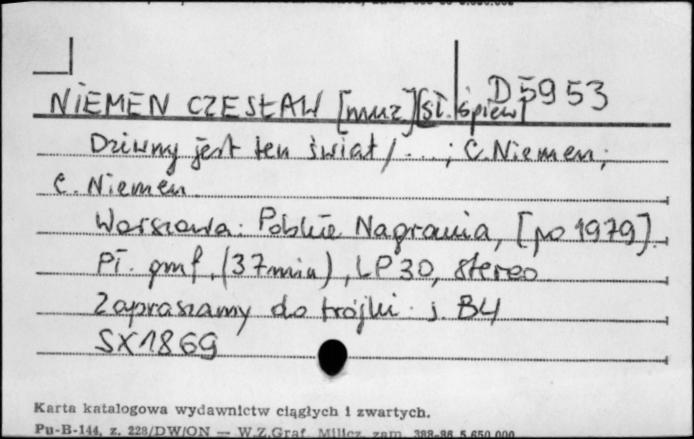 D 5953
NIEMEN CZESŁAW [muz] [sł. śpiew]
Dziwny jest ten świat / . . . ; C. Niemen ;
C. Niemen
Warszawa : Polskie Nagrania, [po 1979].
Pł. gmf. (37 min), LP 30, stereo
Zapraszamy do trójki ; B4
SX 1869
Karta katalogowa wydawnictw ciągłych i zwartych.
Pu-B-144, z. 228/DW/ON — W.Z.Graf. Milicz, zam. 388-86 5.650.000